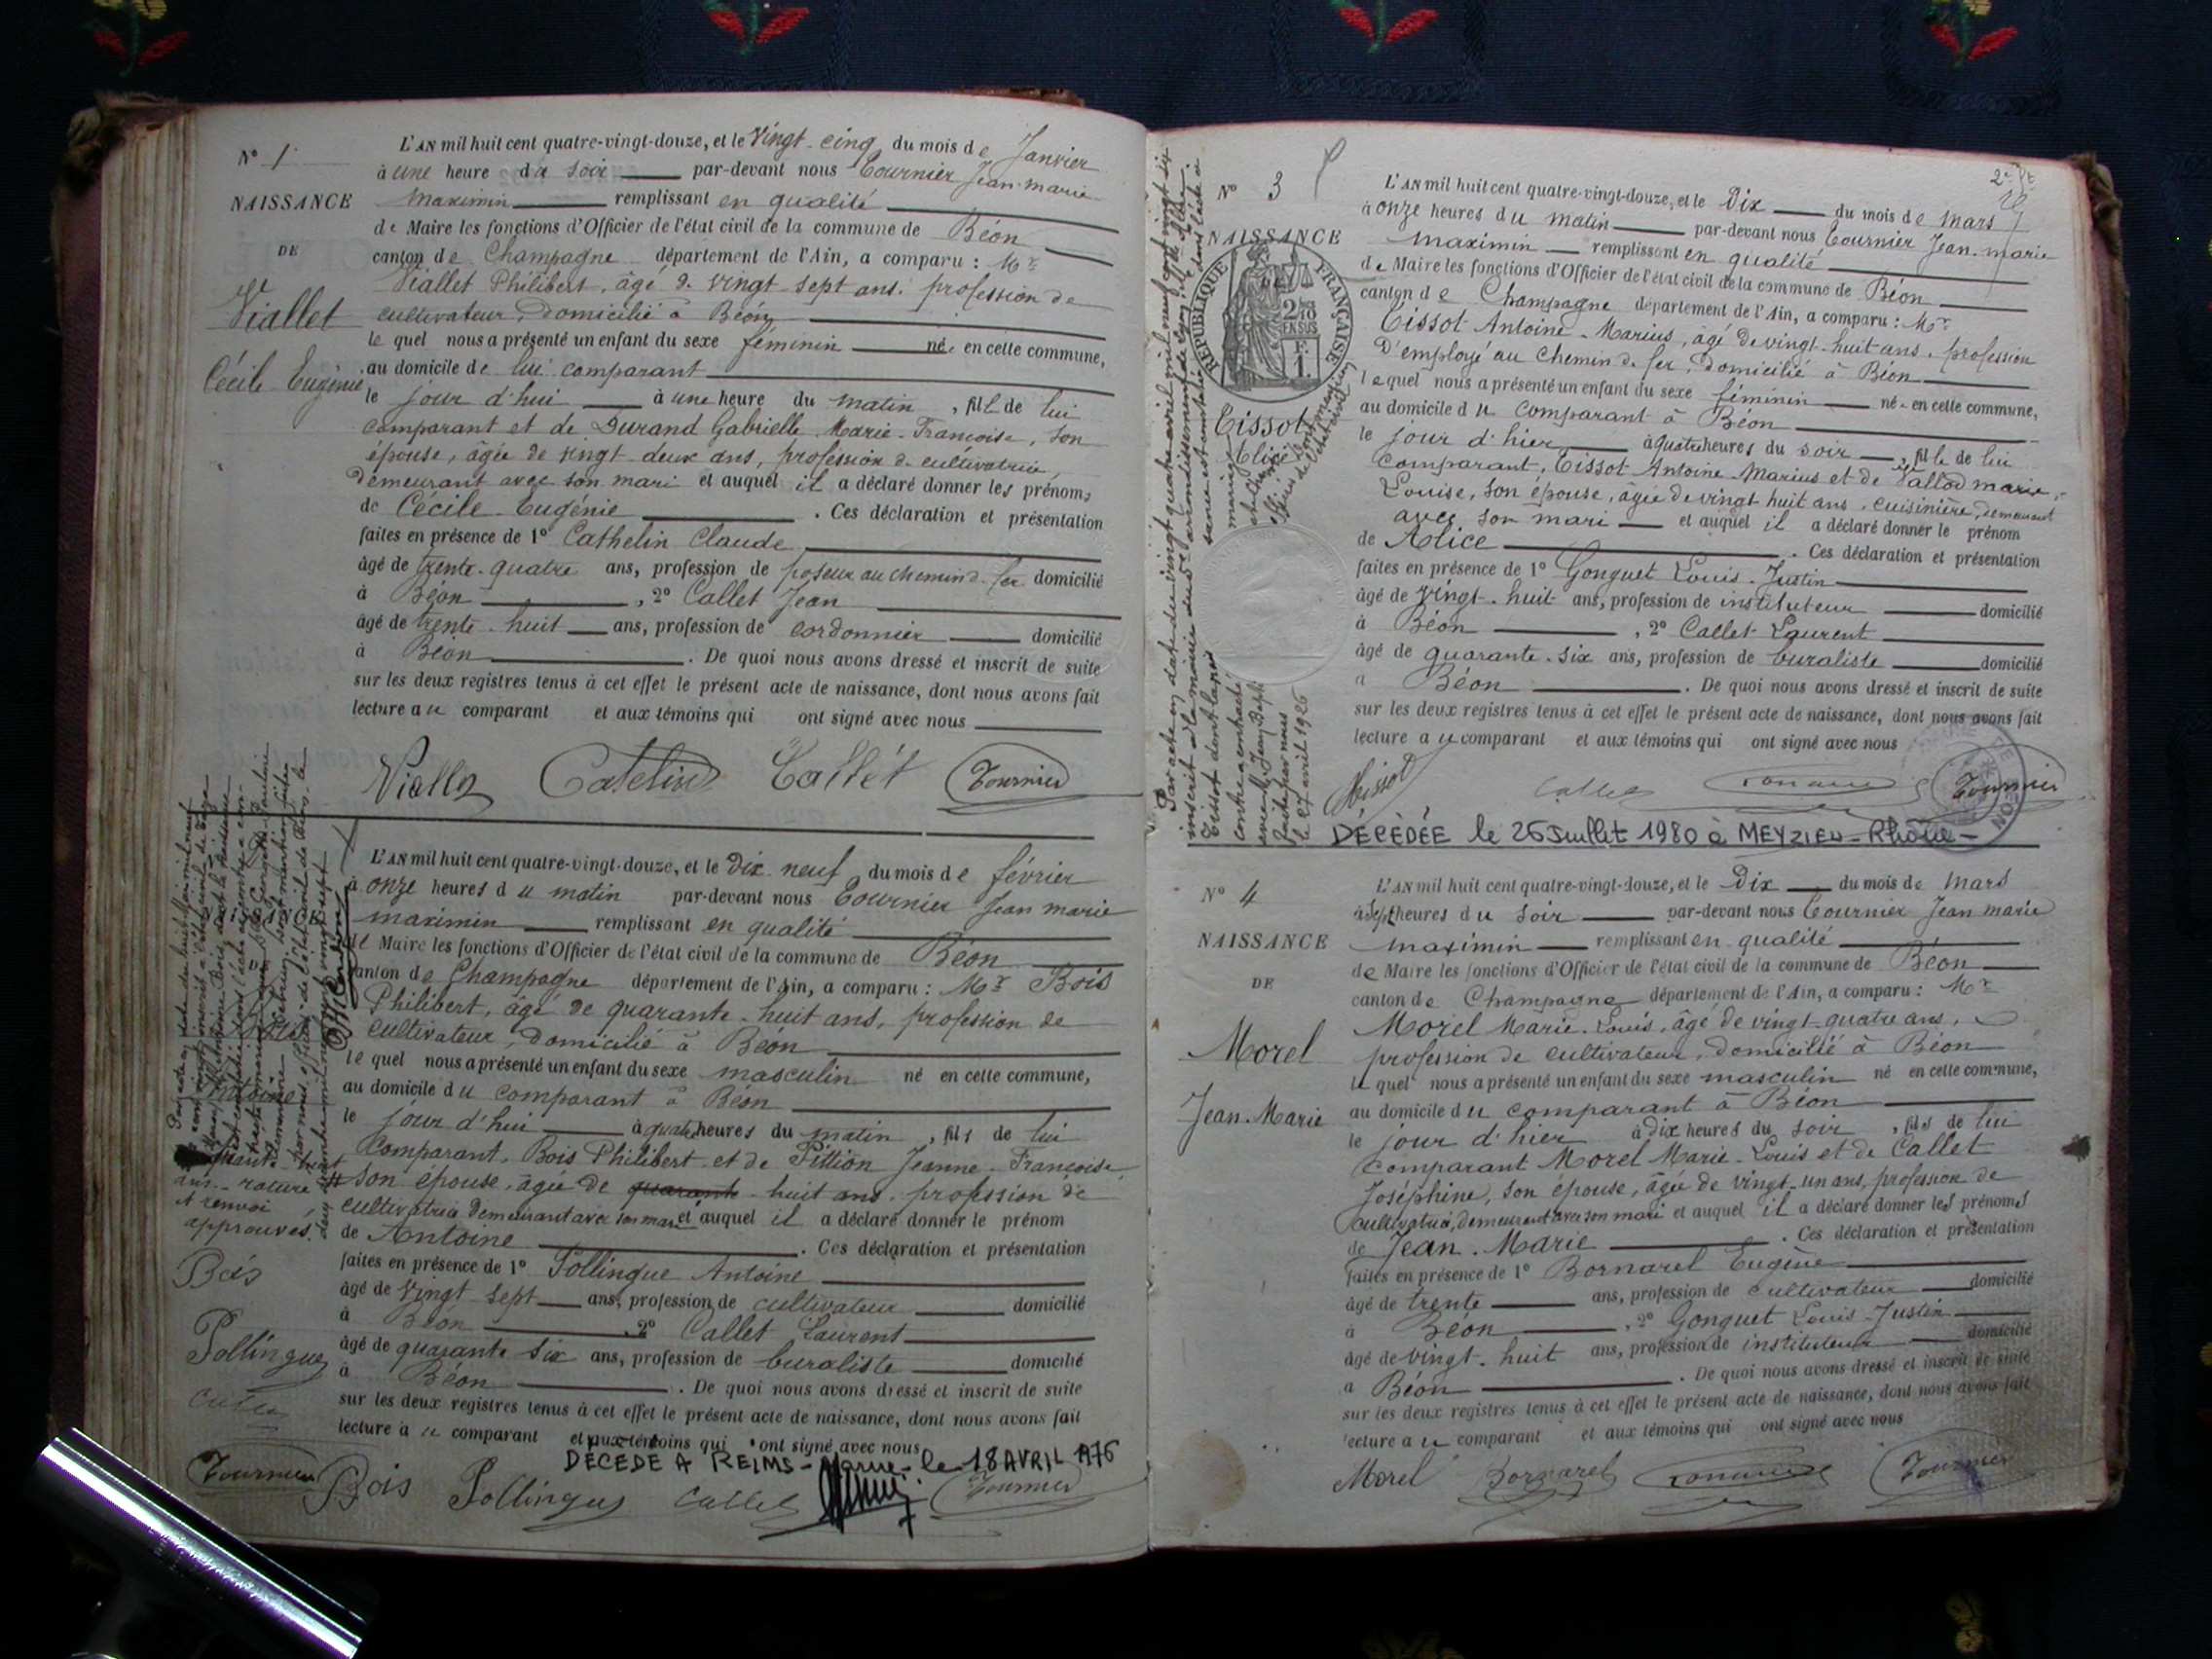 N° 1
NAISSANCE
DE
Viallet
Cécile Eugénie
L'AN mil huit cent quatre-vingt-douze, et le Vingt-cinq du mois de Janvier
à une heure du soir par-devant nous Tournier Jean-marie
maximin remplissant en qualité
de Maire les fonctions d'Officier de l'état civil de la commune de Béon
canton de Champagne département de l'Ain, a comparu : Mr
Viallet Philibert, âgé de vingt-sept ans, profession de
cultivateur, domicilié à Béon
le quel nous a présenté un enfant du sexe féminin né en cette commune,
au domicile de lui comparant
le jour d'hui à une heure du matin, fille de lui
comparant et de Durand Gabrielle Marie-Françoise, son
épouse, âgée de vingt-deux ans, profession de cultivatrice,
demeurant avec son mari et auquel il a déclaré donner les prénoms
de Cécile Eugénie. Ces déclaration et présentation
faites en présence de 1° Cathelin Claude
âgé de trente-quatre ans, profession de poseur au chemin d. fer domicilié
à Béon, 2° Callet Jean
âgé de trente-huit ans, profession de cordonnier domicilié
à Béon. De quoi nous avons dressé et inscrit de suite
sur les deux registres tenus à cet effet le présent acte de naissance, dont nous avons fait
lecture au comparant et aux témoins qui ont signé avec nous
Catelin Callet Tournier
L'AN mil huit cent quatre-vingt-douze, et le Dix neuf du mois de février
à onze heures du matin par-devant nous Tournier Jean marie
maximin remplissant en qualité
de Maire les fonctions d'Officier de l'état civil de la commune de Béon
canton de Champagne département de l'Ain, a comparu : Mr Bois
Philibert, âgé de quarante-huit ans, profession de
cultivateur, domicilié à Béon
le quel nous a présenté un enfant du sexe masculin né en cette commune,
au domicile du comparant à Béon
le jour d'hui à quatre heures du matin, fils de lui
comparant, Bois Philibert et de Pittion Jeanne-Françoise
son épouse, âgée de quarante-huit ans, profession de
cultivatrice demeurant avec son mari et auquel il a déclaré donner le prénom
de Antoine. Ces déclaration et présentation
faites en présence de 1° Pollingue Antoine
âgé de vingt-sept ans, profession de cultivateur domicilié
à Béon, 2° Callet Laurent
âgé de quarante six ans, profession de buraliste domicilié
à Béon. De quoi nous avons dressé et inscrit de suite
sur les deux registres tenus à cet effet le présent acte de naissance, dont nous avons fait
lecture au comparant et aux témoins qui ont signé avec nous
DÉCÉDÉ A REIMS - Marne - le 18 AVRIL 1976
ans. rature
et renvoi
approuvés.
Bois
Pollingue
Callet
Tournier Bois Pollingue Callet Tournier
N° 3
NAISSANCE
RÉPUBLIQUE FRANÇAISE
Tissot
L'AN mil huit cent quatre-vingt-douze, et le Dix du mois de Mars
à onze heures du matin par-devant nous Tournier Jean-marie
maximin remplissant en qualité
de Maire les fonctions d'Officier de l'état civil de la commune de Béon
canton de Champagne département de l'Ain, a comparu : Mr
Tissot Antoine-Marius, âgé de vingt-huit ans, profession
D'employé au chemin d. fer, domicilié à Béon
le quel nous a présenté un enfant du sexe féminin né en cette commune,
au domicile du comparant à Béon
le jour d'hier à quatre heures du soir, fille de lui
comparant, Tissot Antoine-Marius et de Vallod marie
Louise, son épouse, âgée de vingt huit ans, cuisinière, demeurant
avec son mari et auquel il a déclaré donner le prénom
de Alice. Ces déclaration et présentation
faites en présence de 1° Gonguet Louis-Justin
âgé de vingt-huit ans, profession de instituteur domicilié
à Béon, 2° Callet Laurent
âgé de quarante-six ans, profession de buraliste domicilié
a Béon. De quoi nous avons dressé et inscrit de suite
sur les deux registres tenus à cet effet le présent acte de naissance, dont nous avons fait
lecture au comparant et aux témoins qui ont signé avec nous
Tissot Callet Tournier
DÉCÉDÉE le 26 Juillet 1980 à MEYZIEU - Rhône -
le 27 avril 1926
N° 4
NAISSANCE
DE
Morel
Jean-Marie
L'AN mil huit cent quatre-vingt-douze, et le Dix du mois de Mars
à sept heures du soir par-devant nous Tournier Jean marie
maximin remplissant en qualité
de Maire les fonctions d'Officier de l'état civil de la commune de Béon
canton de Champagne département de l'Ain, a comparu : Mr
Morel Marie-Louis, âgé de vingt-quatre ans,
profession de cultivateur, domicilié à Béon
le quel nous a présenté un enfant du sexe masculin né en cette commune,
au domicile du comparant à Béon
le jour d'hier à dix heures du soir, fils de lui
comparant Morel Marie-Louis et de Callet
Joséphine, son épouse, âgée de vingt-un ans, profession de
cultivatrice, demeurant avec son mari et auquel il a déclaré donner les prénoms
de Jean-Marie. Ces déclaration et présentation
faites en présence de 1° Bornarel Eugène
âgé de trente ans, profession de cultivateur domicilié
à Béon, 2° Gonguet Louis-Justin
âgé de vingt-huit ans, profession de instituteur domicilié
a Béon. De quoi nous avons dressé et inscrit de suite
sur les deux registres tenus à cet effet le présent acte de naissance, dont nous avons fait
lecture au comparant et aux témoins qui ont signé avec nous
Morel Bornarel Tournier